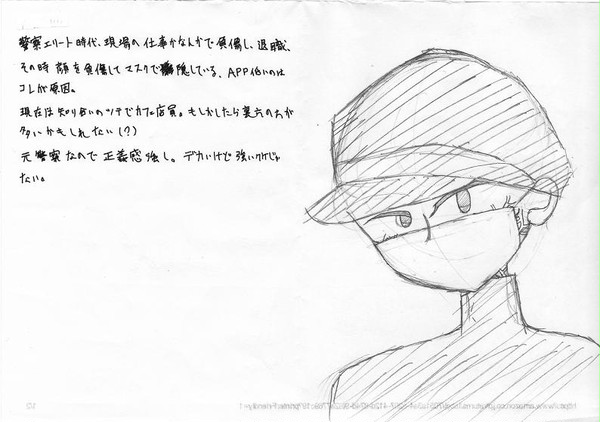 警察エリート時代、現場の仕事かなんかで負傷し、退職、
その時 顔を負傷して マスクで隠している。APP低いのは
コレが原因。
現在は知り合いのツテでカフェ店員。もしかしたら裏方の方が
多いかもしれない(?)
元警察なので 正義感強し。デカいけど強いわけじゃ
ない。